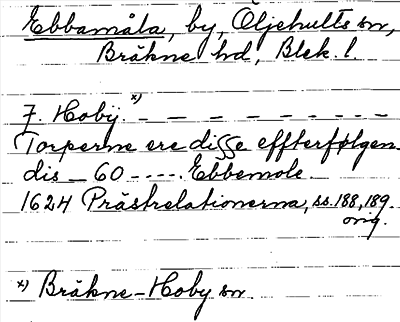 Ebbamåla, by, Öljehults sn,
Bräkne hd, Blek. l.
J. Hobÿ. x) – – – – – – – – –
Torperne ere disse effterfølgen
dis – 60 - - - - - Ebbemole.
1624 Prästrelationerna, ss. 188, 189.
orig.
x) Bräkne-Hoby sn.